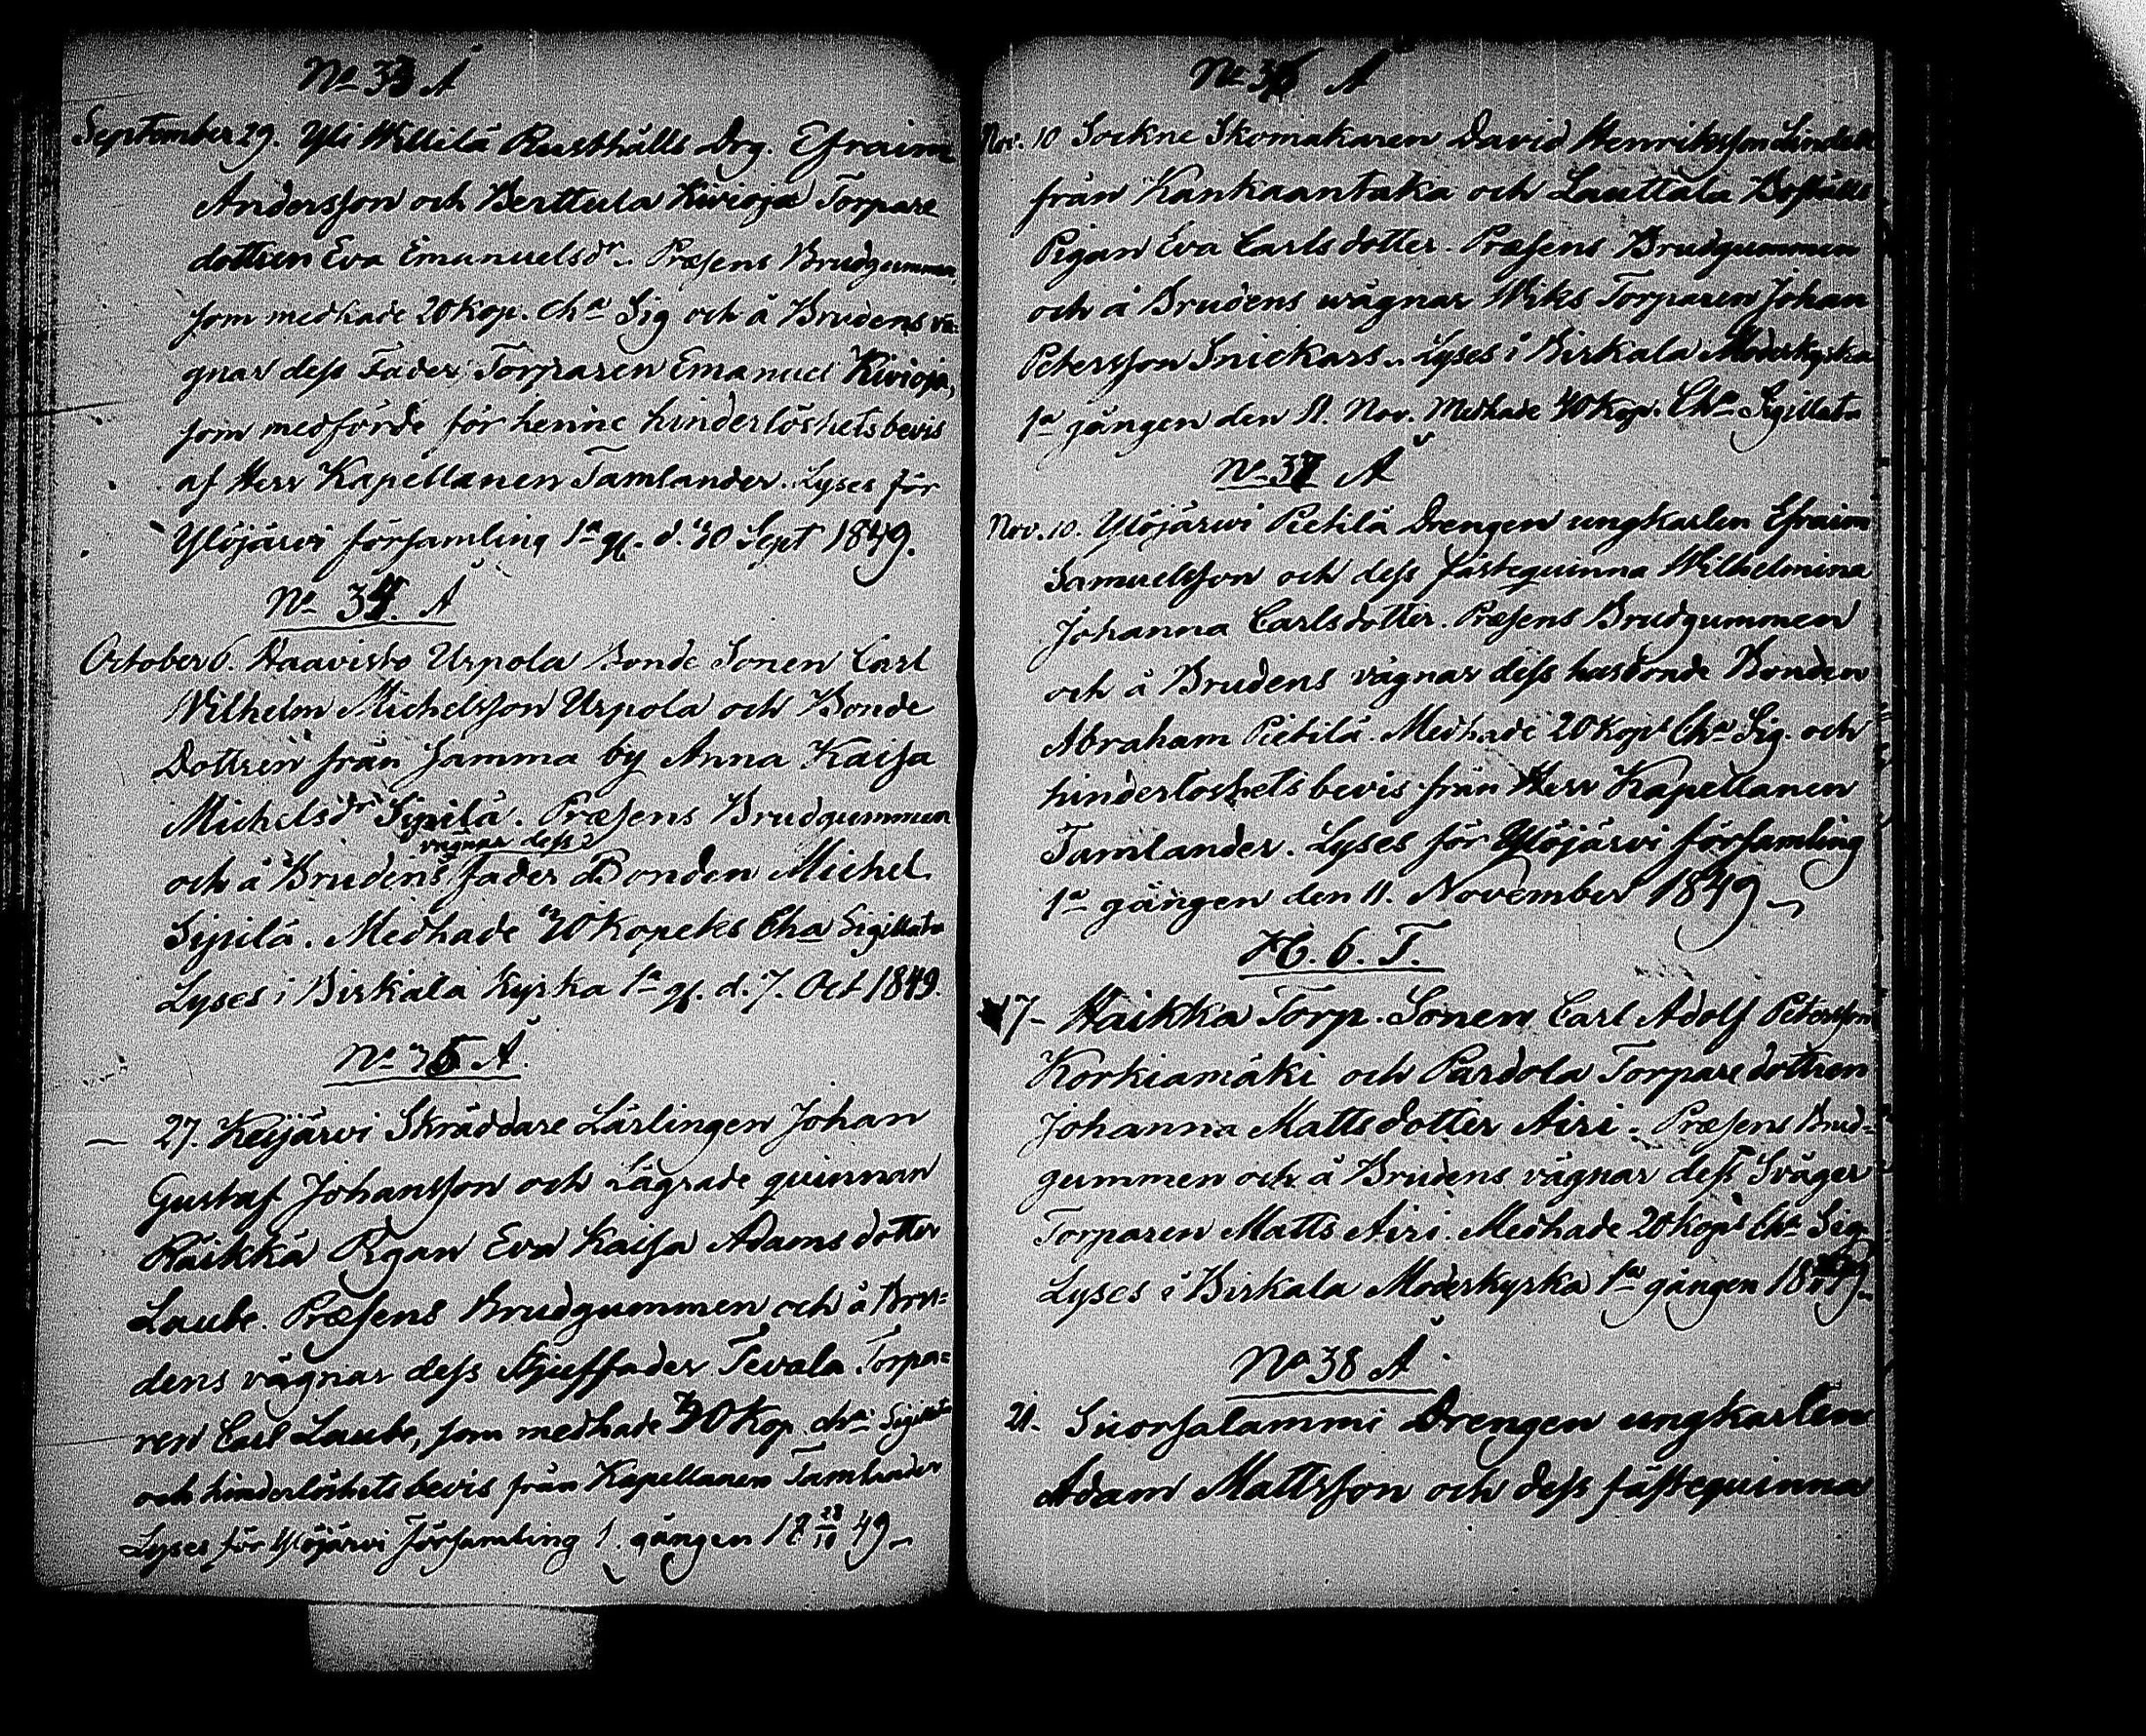 No 33 Å
September 29. Yli Willilä Rusthålls Drg. Efraim
Andersson och Berttula Kivioja Torpare
dottren Eva Emanuelsdr. Præsens Brudgummen,
som medhade 20 kop. Cha Sig och å Brudens vä-
gnar dess Fader, Torparen Emanuel Kivioja,
som medförde för henne hinderlöshetsbevis
af Herr Kapellanen Tamlander. Lyses för
Ylöjärvi församling 1a g. d. 30 Sept 1849.
No 34. Å
October 6. Haavisto Urpola Bonde Sonen Carl
Wilhelm Michelsson Urpola och Bonde
Dottren från Samma by Anna Kaisa
Michelsdr Sipilä. Præsens Brudgummen
och å Brudens vägnar dess fader Bonden Michel
Sipilä. Medhade 30 kopeks Cha Sigillata
Lyses i Birkala Kyrka 1a g. d. 7. Oct 1849.
No 35 Å.
— 27. Keijärvi Skräddare Lärlingen Johan
Gustaf Johansson och Lägrade quinnan
Räikkä Pigan Eva Kaisa Adamsdotter
Laube. Præsens Brudgummen och å Bru-
dens vägnar dess Stjuffader Tevala Torpa-
ren Carl Laube, som medhade 30 Kop. cha Sigillata
och hinderlöshetsbevis från Kapellanen Tamlander
Lyses för Ylöjärvi Församling 1. gången 18 28/10 49
No 36 Å
Nov. 10 Sockne Skomakaren David Henriksson Lindell
från Kankaantaka och Lauttala Boställs
Pigan Eva Carlsdotter. Præsens Brudgummen
och å Brudens wägnar Wiks Torparen Johan
Petersson Snickars. Lyses i Birkala Moderkyrka
1a gången den 11. Nov. Medhade 40 kop. Cha Sigillata
No 37 Å
Nov. 10. Ylöjärwi Pietilä Drengen ungkarlen Efraim
Samuelsson och dess fästequinna Wilhelmina
Johanna Carlsdotter. Præsens Brudgummen
och å Brudens vägnar dess husbonde Bonden
Abraham Pietilä. Medhade 20 kops Cha Sig. och
hinderlöshetsbevis från Herr Kapellanen
Tamlander. Lyses för Ylöjärvi församling
1a gången den 11. November 1849
H. 6. T.
17- Haikka Torp. Sonen Carl Adolf Petersson
Korkiamäki och Pardola Torpare dottren
Johanna Mattsdotter Airi. Præsens Brud-
gummen och å Brudens vägnar dess Svåger
Torparen Matts Airi. Medhade 20 kops Cha Sig.
Lyses i Birkala Moderkyrka 1a gången
No 38 Å
21- Suorsalammi Drengen ungkarlen
Adam Mattsson och dess fästequinna